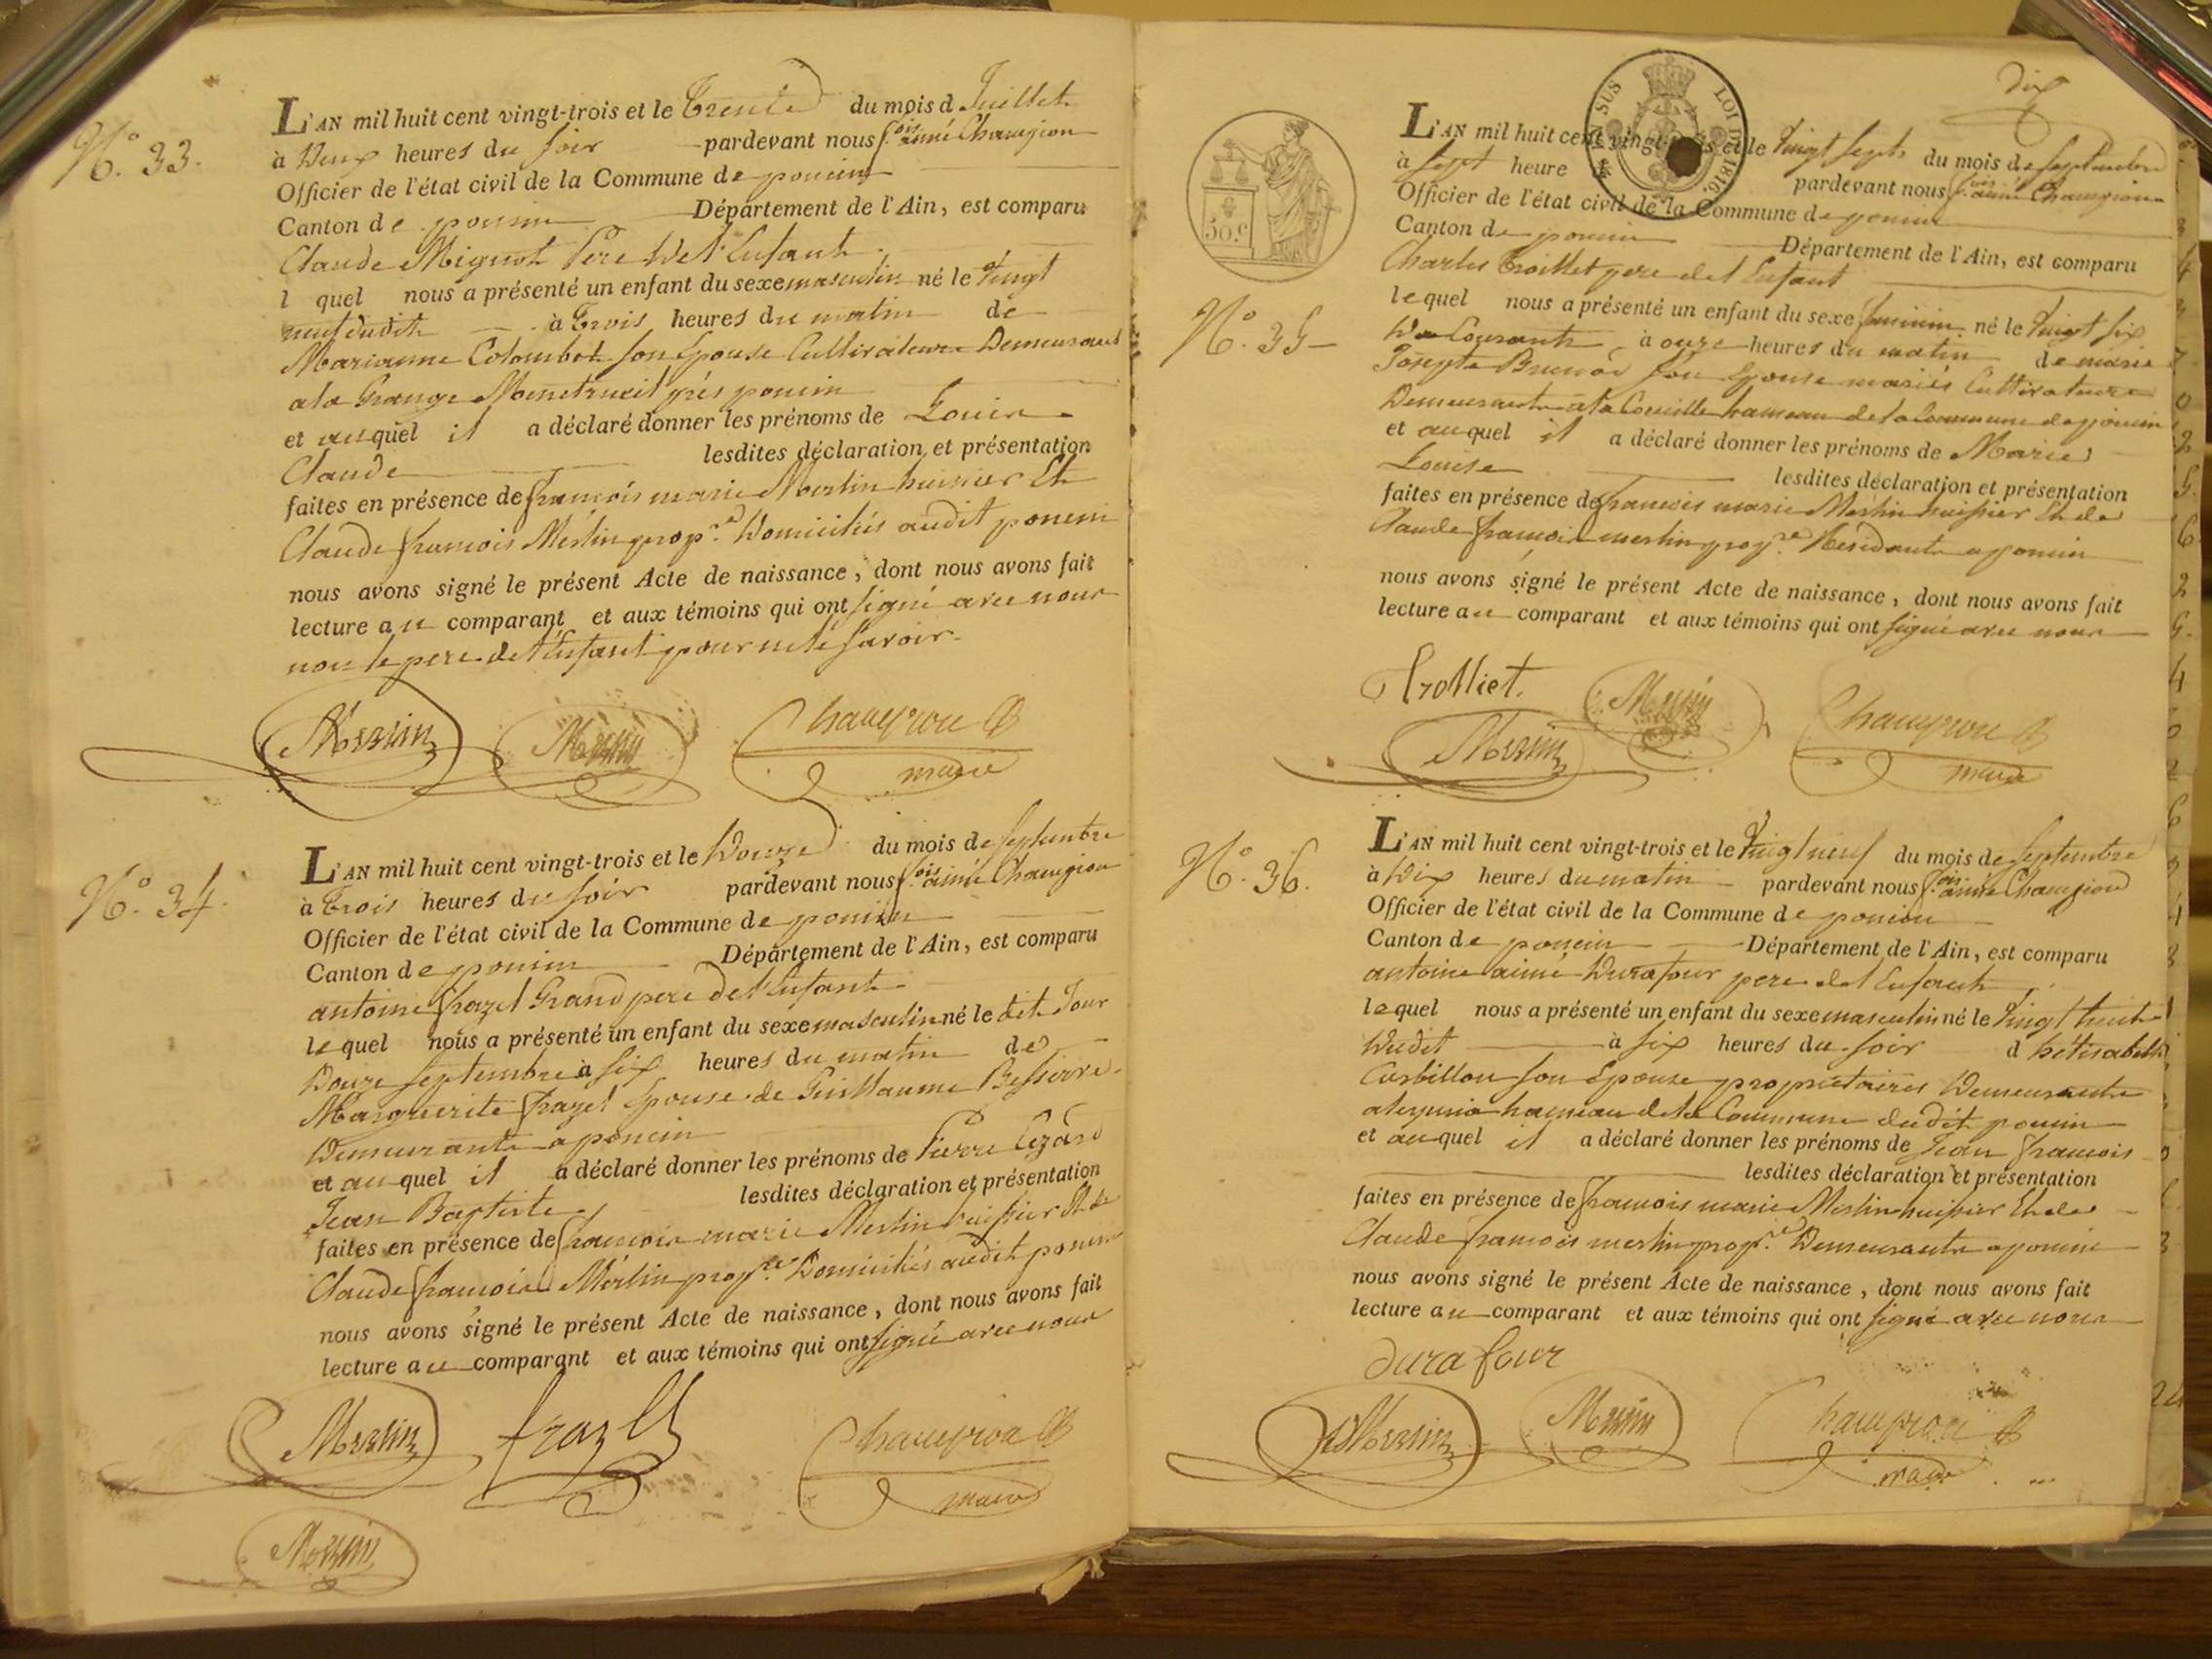 N.o 33.
L'AN mil huit cent vingt-trois et le Trente du mois d Juillet
à Deux heures du soir pardevant nous f.ois aimé Champion
Officier de l'état civil de la Commune de poncin
Canton de poncin Département de l'Ain, est comparu
Claude Mignot Père De l'Enfant
l quel nous a présenté un enfant du sexe masculin né le Vingt
neuf dudit à Trois heures du matin de
Marianne Colombet son Epouse Cultivateurs Demeurant
a la Grange Menetrueil près poncin
et auquel il a déclaré donner les prénoms de Louis
Claude lesdites déclaration et présentation
faites en présence de françois marie Merlin huissier Et
Claude françois Merlin prop.re Domiciliés audit poncin
nous avons signé le présent Acte de naissance, dont nous avons fait
lecture au comparant et aux témoins qui ont signé avec nous
non le pere de l'Enfant pour ne le savoir.
Merlin Merlin Champion
maire
N.o 34.
L'AN mil huit cent vingt-trois et le Douze du mois de septembre
à Trois heures du soir pardevant nous f.ois aimé Champion
Officier de l'état civil de la Commune de poncin
Canton de poncin Département de l'Ain, est comparu
antoine frazet Grand pere de l'Enfant
lequel nous a présenté un enfant du sexe masculin né le dit Jour
Douze septembre à six heures du matin de
Marguerite frazet Epouse de Guillaume Bessierre
Demeurante a poncin
et auquel il a déclaré donner les prénoms de Pierre Cezard
Jean Baptiste lesdites déclaration et présentation
faites en présence de françois marie Merlin huissier Et de
Claude françois Merlin prop.re Domiciliés audit poncin
nous avons signé le présent Acte de naissance, dont nous avons fait
lecture au comparant et aux témoins qui ont signé avec nous
Merlin frazet Champion
maire
Merlin
dix
SUS LOI DE 1816.
50.c
N.o 35
L'AN mil huit cent vingt-trois et le Vingt sept du mois de septembre
à sept heure pardevant nous f.ois aimé Champion
Officier de l'état civil de la Commune de poncin
Canton de poncin Département de l'Ain, est comparu
Charles Trolliet pere de l'Enfant
lequel nous a présenté un enfant du sexe feminin né le Vingt six
Du Courant à onze heures du matin de marie
Josepte son Epouse mariés Cultivateurs
Demeurants a la hameau de la Commune de poncin
et auquel il a déclaré donner les prénoms de Marie
Louise lesdites déclaration et présentation
faites en présence de françois marie Merlin huissier Et de
Claude françois merlin prop.re Résidants a poncin
nous avons signé le présent Acte de naissance, dont nous avons fait
lecture au comparant et aux témoins qui ont signé avec nous
Trolliet. Merlin Champion
Merlin maire
N.o 36.
L'AN mil huit cent vingt-trois et le Vingt neuf du mois de septembre
à Dix heures du matin pardevant nous f.ois aimé Champion
Officier de l'état civil de la Commune de poncin
Canton de poncin Département de l'Ain, est comparu
antoine aimé Durafour pere de l'Enfant
lequel nous a présenté un enfant du sexe masculin né le Vingt huit
Dudit à six heures du soir d
Corbillon son Epouse proprietaires Demeurants
hameau de la Commune dudit poncin
et auquel il a déclaré donner les prénoms de Jean françois
lesdites déclaration et présentation
faites en présence de françois marie Merlin huissier Et de
Claude françois merlin prop.re Demeurants a poncin
nous avons signé le présent Acte de naissance, dont nous avons fait
lecture au comparant et aux témoins qui ont signé avec nous
durafour
Merlin Merlin Champion
maire